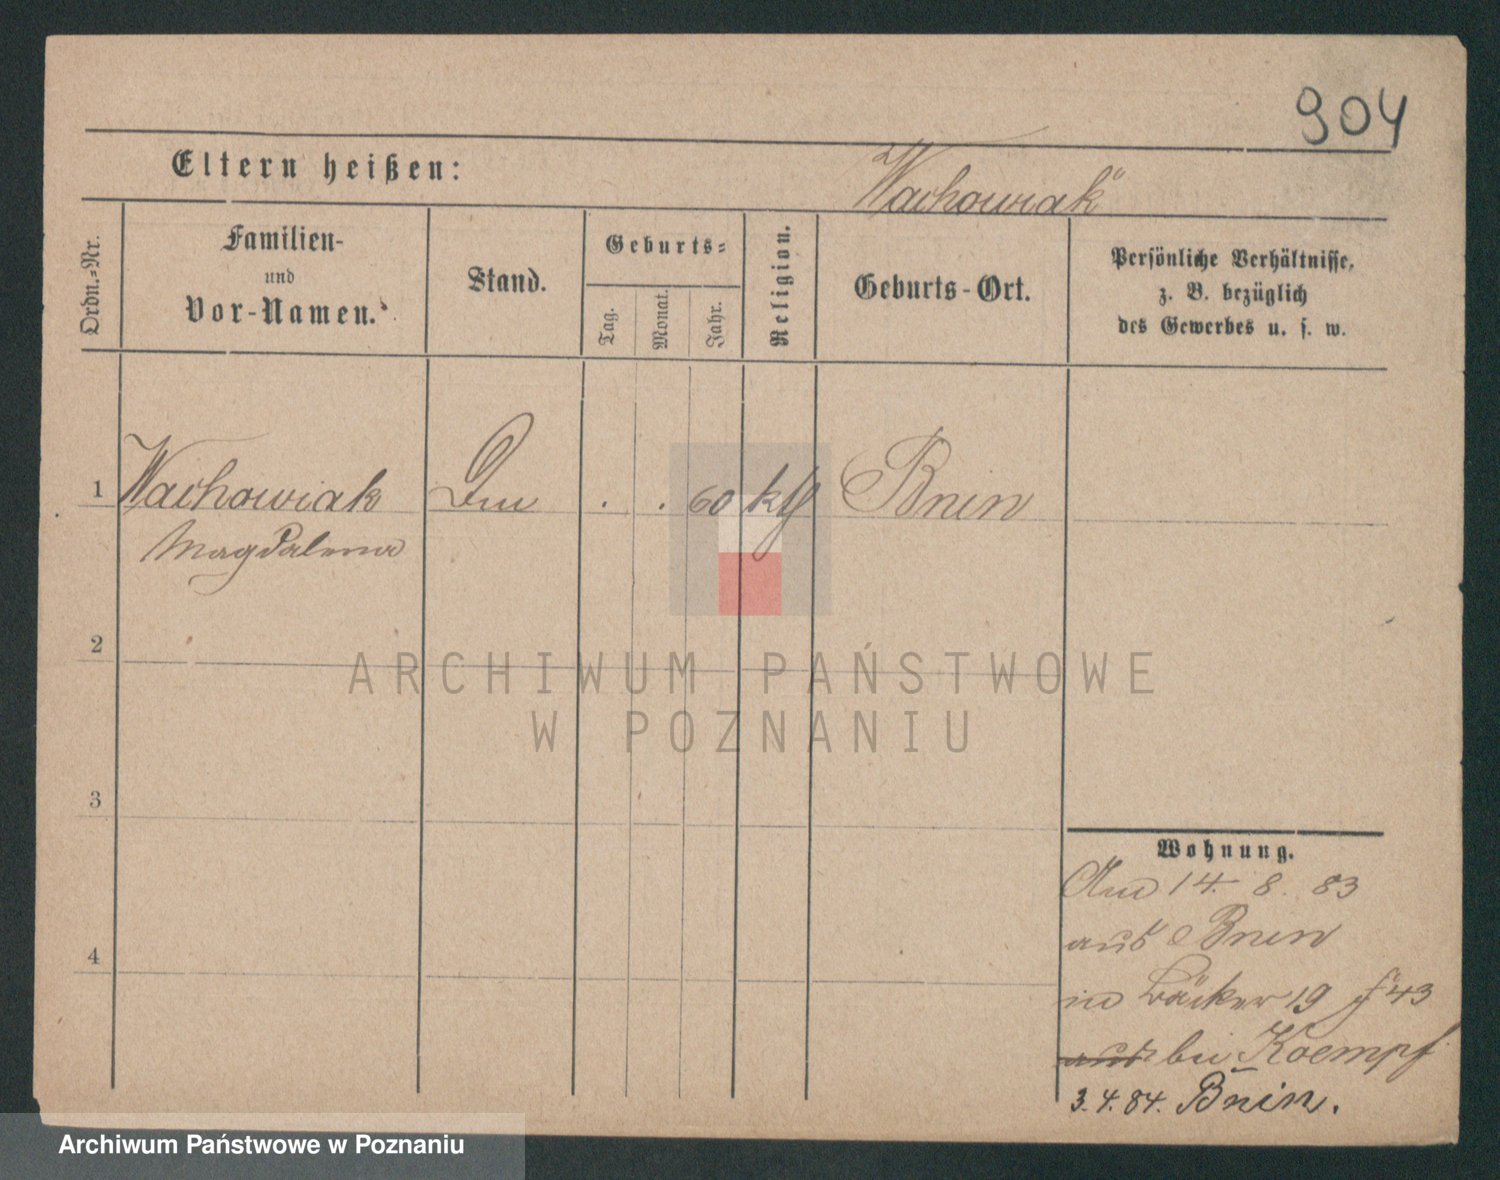 904
Eltern heißen:
Wachowiak
Ordn.-Nr.
Familien-
und
Vor-Namen.
Stand.
Geburts-
Tag.
Monat.
Jahr.
Religion.
Geburts-Ort.
Persönliche Verhältnisse,
z. B. bezüglich
des Gewerbes u. s. w.
1 Wachowiak . . 60 kth Bnin
Magdalena
2
ARCHIWUM PAŃSTWOWE
W POZNANIU
3
4
Wohnung.
14. 8. 83
aus Bnin
in Bäcker 19 43
aus bei Koempf
3.4.84. Bnin.
Archiwum Państwowe w Poznaniu